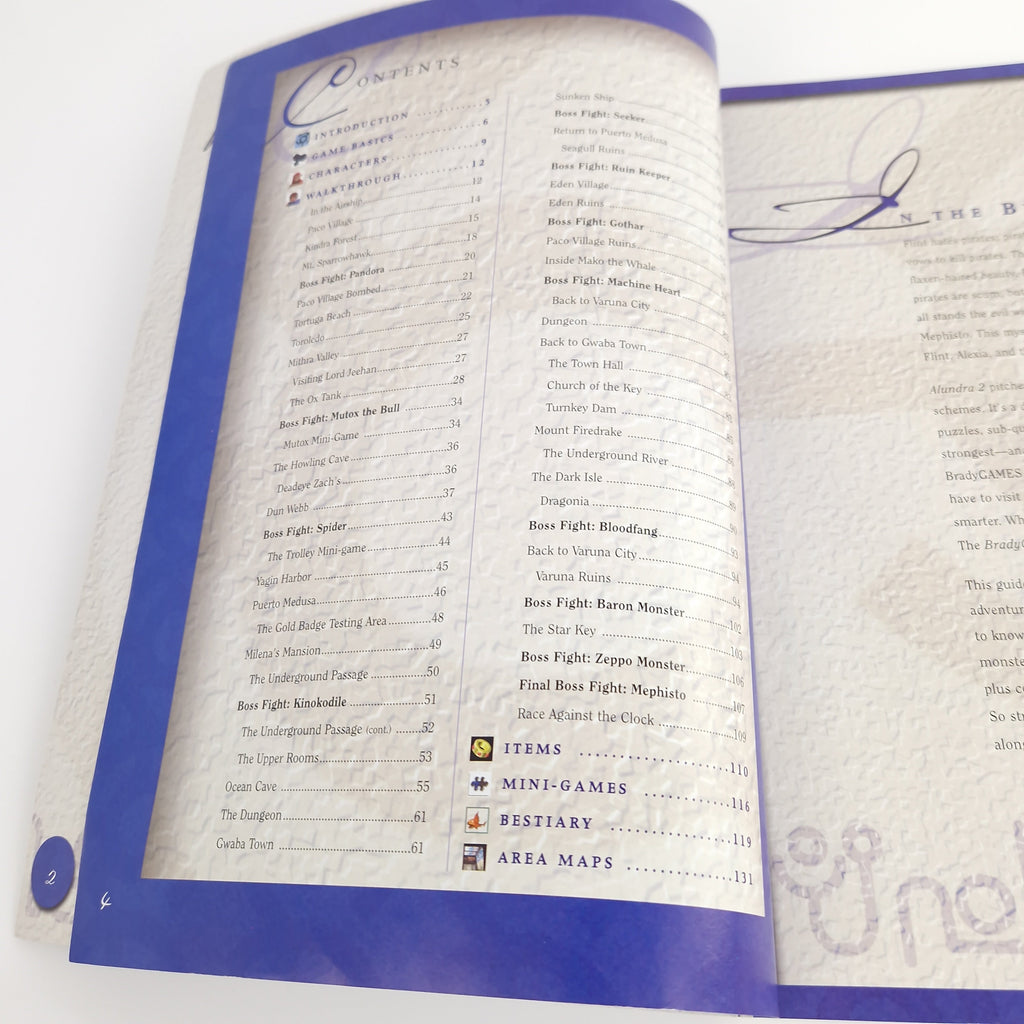 CONTENTS
INTRODUCTION ..........5
GAME BASICS ..........6
CHARACTERS ..........9
WALKTHROUGH ..........12
In the Airship ..........12
Paco Village ..........14
Kindra Forest ..........15
Mt. Sparrowhawk ..........18
Boss Fight: Pandora ..........20
Paco Village Bombed ..........21
Tortuga Beach ..........22
Toroledo ..........25
Mithra Valley ..........27
Visiting Lord Jeehan ..........27
The Ox Tank ..........28
Boss Fight: Mutox the Bull ..........34
Mutox Mini-Game ..........34
The Howling Cave ..........36
Deadeye Zach's ..........36
Dun Webb ..........37
Boss Fight: Spider ..........43
The Trolley Mini-game ..........44
Yagin Harbor ..........45
Puerto Medusa ..........46
The Gold Badge Testing Area ..........48
Milena's Mansion ..........49
The Underground Passage ..........50
Boss Fight: Kinokodile ..........51
The Underground Passage (cont.) ..........52
The Upper Rooms ..........53
Ocean Cave ..........55
The Dungeon ..........61
Gwaba Town ..........61
Sunken Ship
Boss Fight: Seeker
Return to Puerto Medusa
Seagull Ruins
Boss Fight: Ruin Keeper
Eden Village
Eden Ruins
Boss Fight: Gothar
Paco Village Ruins
Inside Mako the Whale
Boss Fight: Machine Heart
Back to Varuna City
Dungeon
Back to Gwaba Town
The Town Hall
Church of the Key
Turnkey Dam
Mount Firedrake
The Underground River
The Dark Isle
Dragonia
Boss Fight: Bloodfang
Back to Varuna City
Varuna Ruins
Boss Fight: Baron Monster ..........102
The Star Key ..........103
Boss Fight: Zeppo Monster ..........106
Final Boss Fight: Mephisto ..........107
Race Against the Clock ..........109
ITEMS ..........110
MINI-GAMES ..........116
BESTIARY ..........119
AREA MAPS ..........131
2
4
IN THE B
Flint hates pirates;
vows to kill pirates. Th
flaxen-haired beauty,
pirates are scum, but
all stands the evil
Mephisto. This
Flint, Alexia, and
Alundra 2 pitche
schemes. It's a
puzzles, sub-qu
strongest—an
BradyGAMES
have to visit
smarter. Wh
The Brady
This guid
adventur
to know
monste
plus c
So st
alon